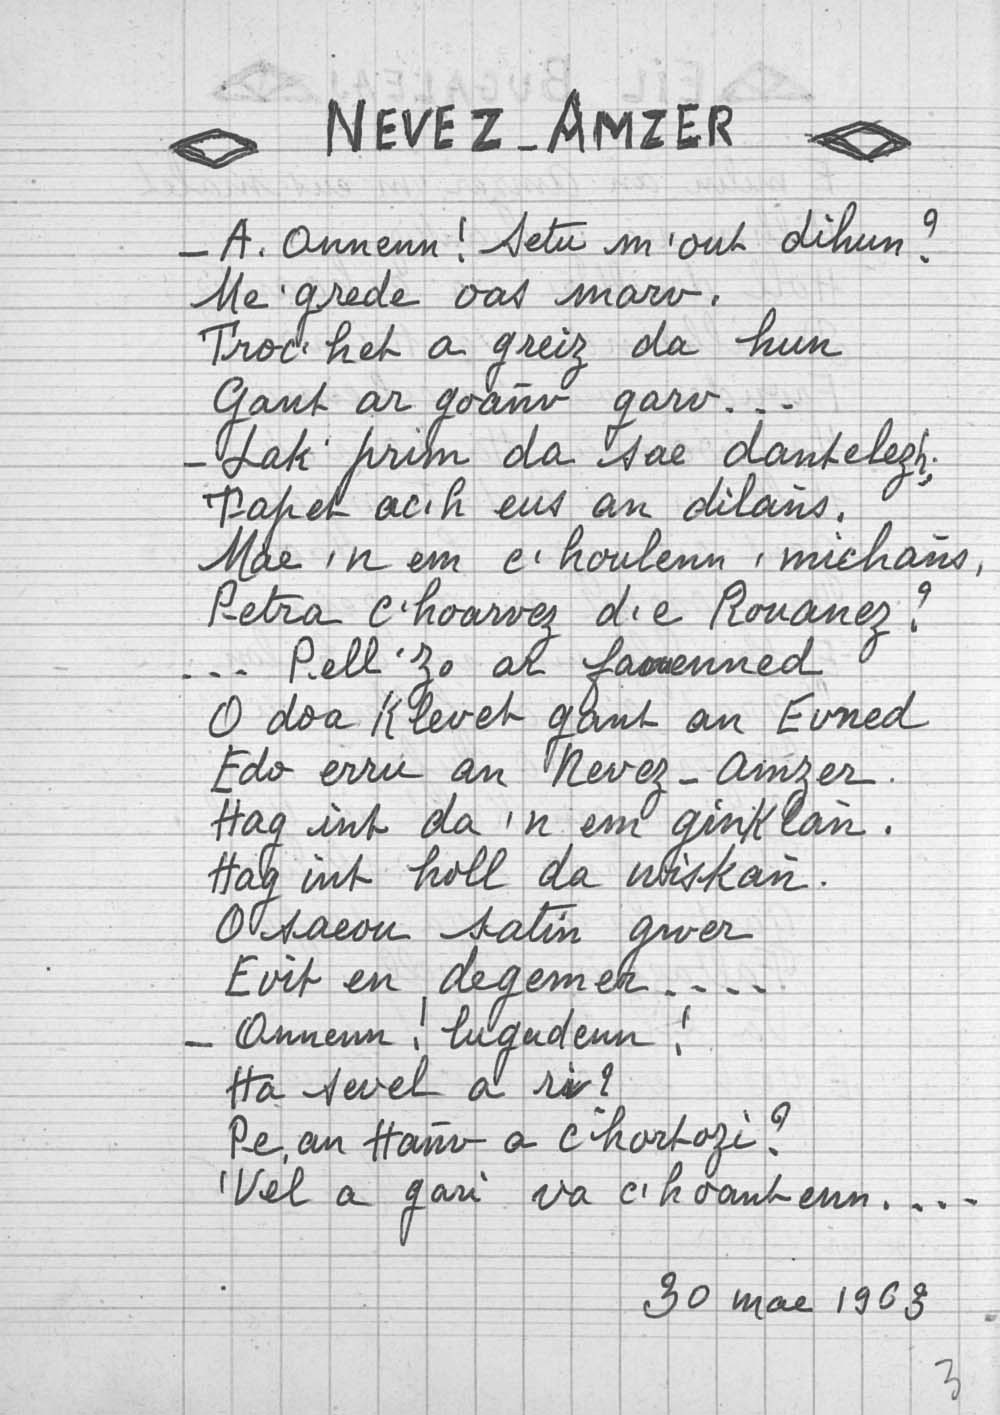 NEVEZ-AMZER
- A. Onnenn! Setu m'out dihun?
Me 'grede oas marv.
Troc'het a greiz da hun
Gant ar goañv garv...
- Lak' prim da sae dantelezh;
Tapet ac'h eus an dilañs.
Mae 'n em c'houlenn 'michañs,
Petra c'hoarvez d'e Rouanez?
... Pell 'zo ar faouenned
O doa Klevet gant an Evned
Edo erru an Nevez-Amzer.
Hag int da 'n em ginklañ.
Hag int holl da wiskañ.
O saeou satin gwer
Evit en degemer....
- Onnenn! lugudenn!
Ha sevel a ri?
Pe, an Hañv a c'hortozi?
'Vel a gari va c'hoantenn....
30 mae 1963
3